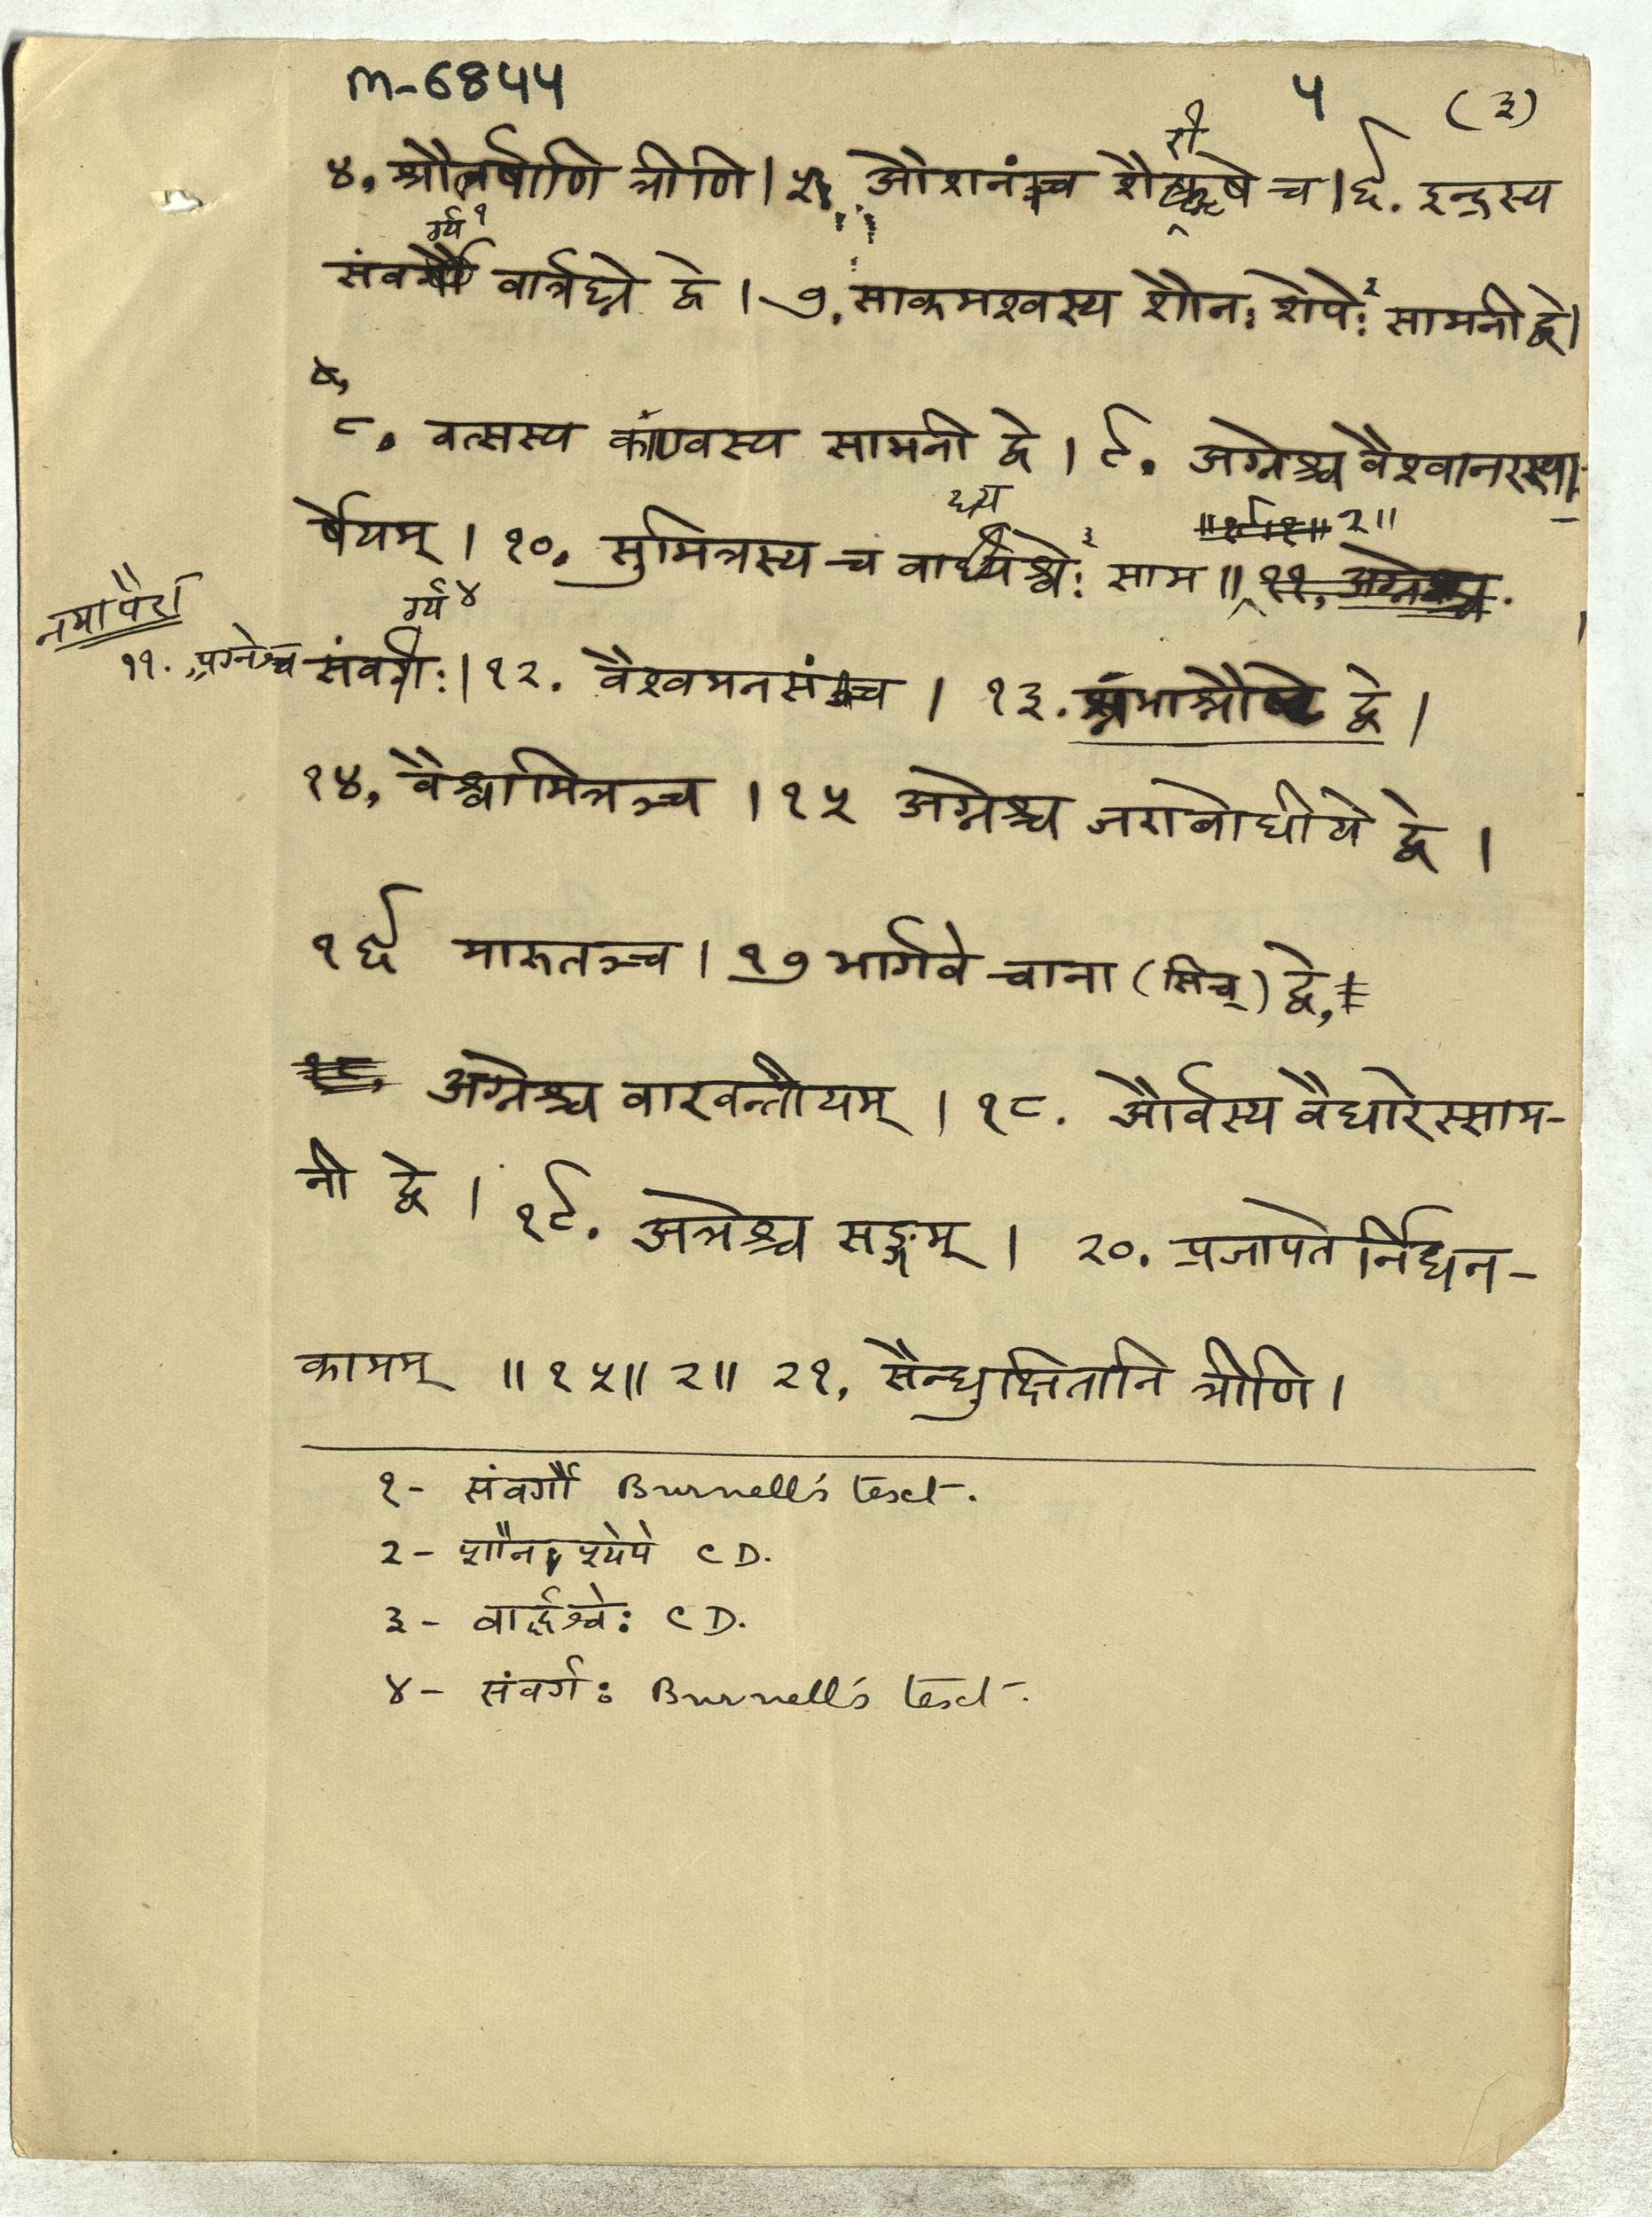 m-6844 4 (३)
४, श्रौतर्षाणि त्रीणि । ५, औशनंच शैरीषे च । ६. इन्द्रस्य
संवर्ग्य१ वार्त्रघ्ने द्वे । ७, साकमश्वस्य शौनः शेपेः२ सामनी द्वे ।
८. वत्सस्य काण्वस्य सामनी द्वे । ९. अग्नेश्च वैश्वानरस्या-
र्षेयम् । १०. सुमित्रस्य च वाध्र्यश्वेः३ साम ॥ २॥
नया पैरा
११. अग्नेश्च संवर्ग्यः४ । १२. वैश्वमनसंच । १३. द्वे ।
१४, वैश्वामित्रञ्च । १५ अग्नेश्च जराबोधीये द्वे ।
१६ मारुतञ्च । १७ भार्गवे चाना (सिच्) द्वे,
अग्नेश्च वारवन्तीयम् । १८. और्वस्य वैधारेस्साम-
नी द्वे । १९. अत्रेश्च सङ्गम् । २०. प्रजापतेर्निधन-
कामम् ॥ १५॥ २॥ २१, सैन्धुक्षितानि त्रीणि ।
१- संवर्गौ Burnell's text.
२- शौन श्येपे C D.
३- वार्द्धश्वेः C D.
४- संवर्गः Burnell's text.